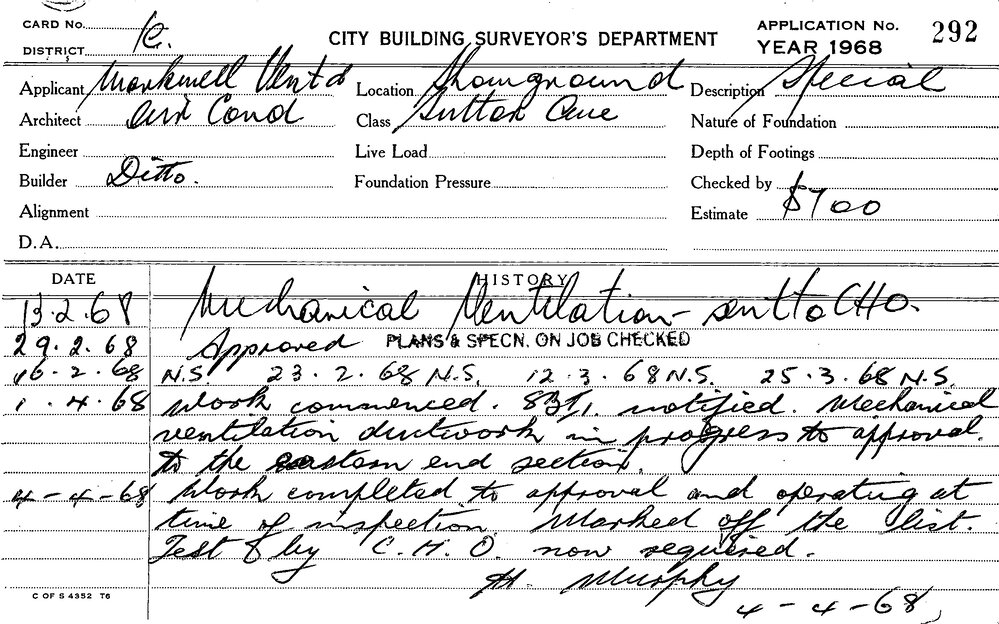 CARD No. K.
DISTRICT
CITY BUILDING SURVEYOR'S DEPARTMENT
APPLICATION No. 292
YEAR 1968
Applicant Markwell Vent &
Location Showground
Description Special
Architect Air Cond
Class Sutton Ave
Nature of Foundation
Engineer
Live Load
Depth of Footings
Builder Ditto.
Foundation Pressure
Checked by
Alignment
Estimate $700
D.A.
DATE HISTORY
13.2.68 Mechanical Ventilation - sent to CHO.
29.2.68 Approved PLANS & SPECN. ON JOB CHECKED
16-2-68 N.S. 23.2.68 N.S. 12.3.68 N.S. 25.3.68 N.S.
1.4.68 Work commenced. notified. Mechanical
ventilation ductwork in progress to approval.
to the eastern end section.
4-4-68 Work completed to approval and operating at
time of inspection. Marked off the list.
Test by C.H.O. now required.
H. Murphy
4-4-68
C OF S 4352 T6